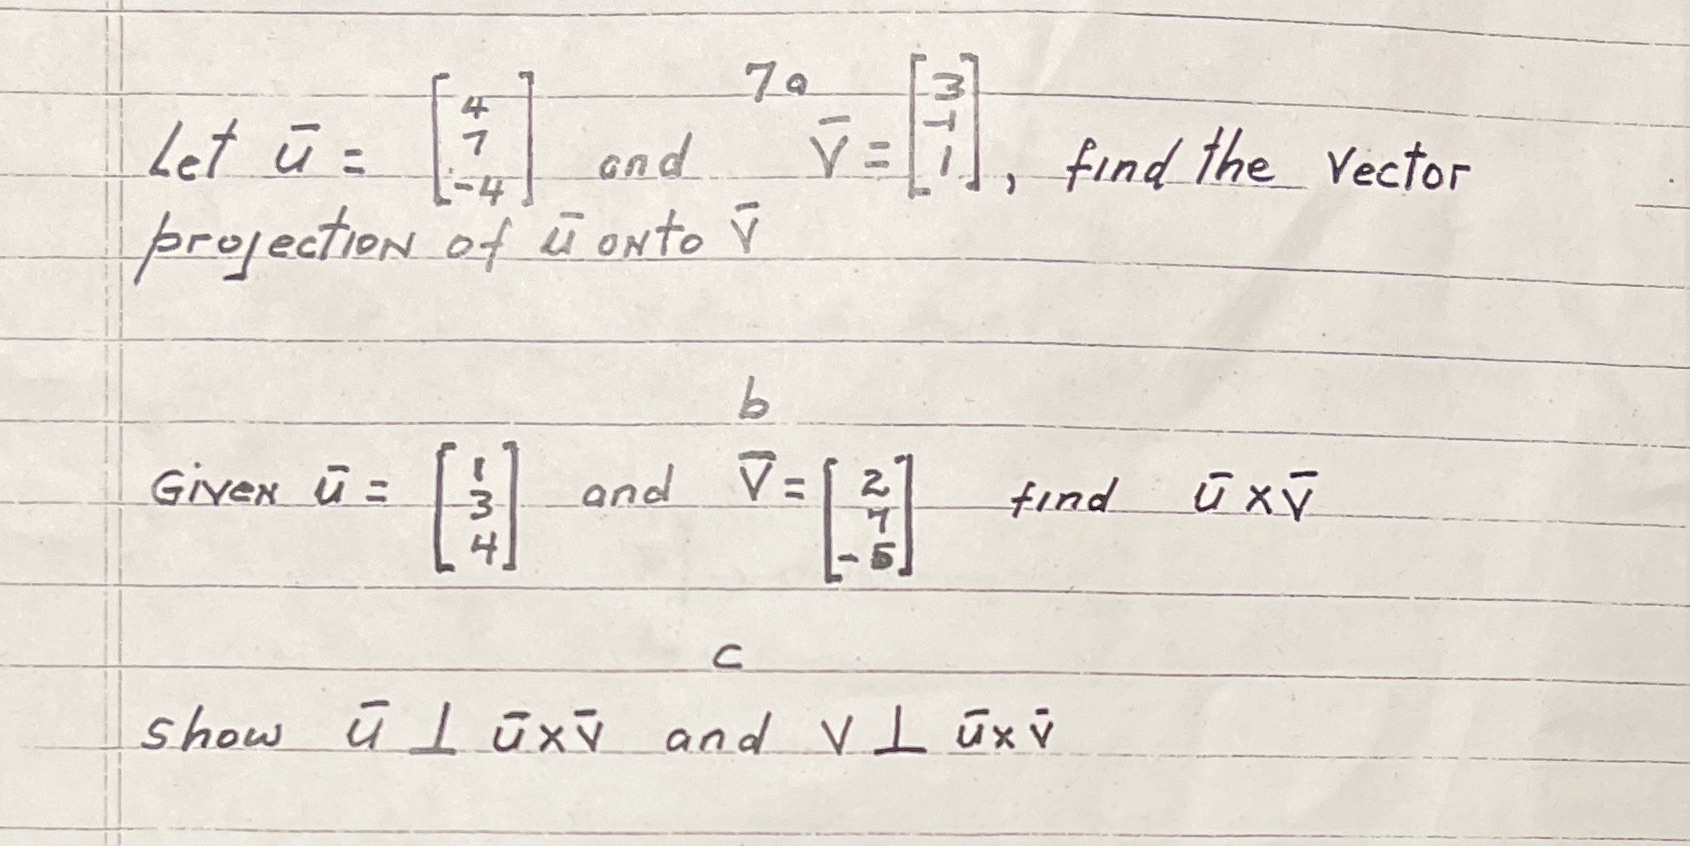 7a
Let ū = [4 7 -4] and v̄ = [3 -1 1], find the vector
projection of ū onto v̄
b
Given ū = [1 3 4] and v̄ = [2 7 -5] find ū x v̄
c
show ū ⊥ ū x v̄ and v ⊥ ū x v̄